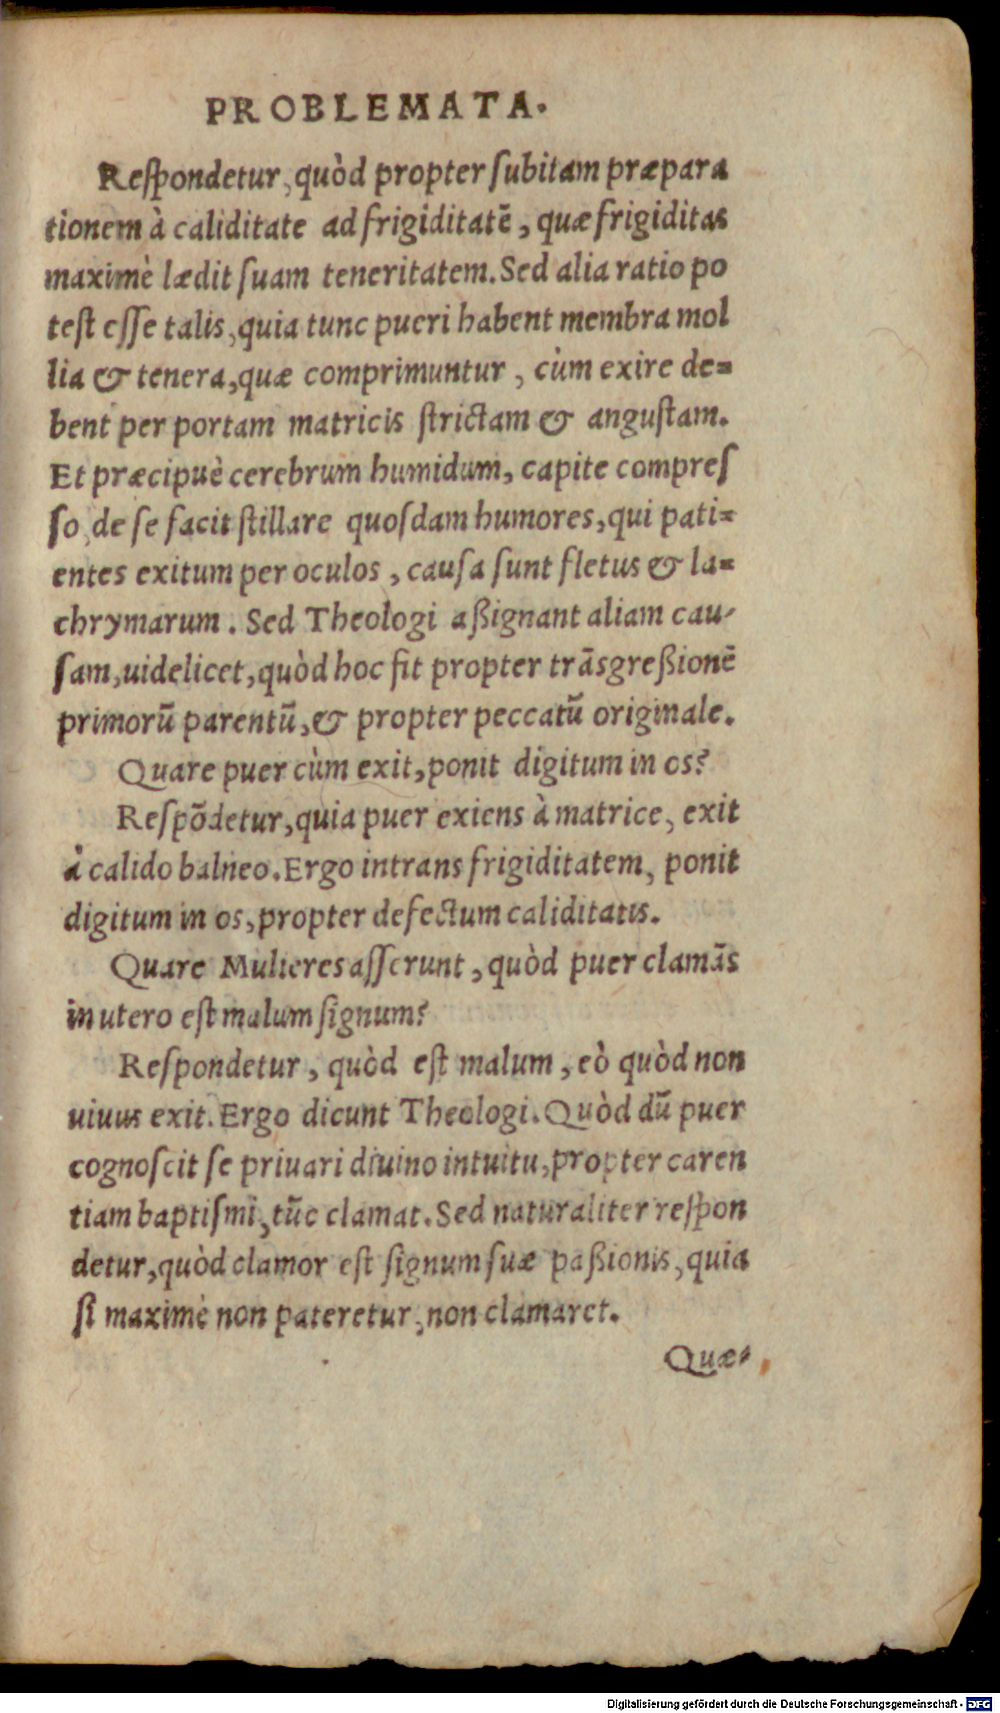 PROBLEMATA.
Reſpondetur, quòd propter ſubitam præpara
tionem à caliditate ad frigiditatẽ, quæ frigiditas
maximè lædit ſuam teneritatem. Sed alia ratio po
teſt eſſe talis, quia tunc pueri habent membra mol
lia & tenera, quæ comprimuntur, cùm exire de=
bent per portam matricis ſtrictam & anguſtam.
Et præcipuè cerebrum humidum, capite compreſ
ſo, de ſe facit ſtillare quoſdam humores, qui pati=
entes exitum per oculos, cauſa ſunt fletus & la=
chrymarum. Sed Theologi aßignant aliam cau-
ſam, uidelicet, quòd hoc fit propter trãſgreßionẽ
primorũ parentũ, & propter peccatũ originale.
Quare puer cùm exit, ponit digitum in os?
Reſpõdetur, quia puer exiens à matrice, exit
à calido balneo. Ergo intrans frigiditatem, ponit
digitum in os, propter defectum caliditatis.
Quare Mulieres aſſerunt, quòd puer clamãs
in utero eſt malum ſignum?
Reſpondetur, quòd eſt malum, eò quòd non
uiuus exit. Ergo dicunt Theologi. Quòd dũ puer
cognoſcit ſe priuari diuino intuitu, propter caren
tiam baptiſmi, tũc clamat. Sed naturaliter reſpon
detur, quòd clamor eſt ſignum ſuæ paßionis, quia
ſi maximè non pateretur, non clamaret.
Quæ-
Digitalisierung gefördert durch die Deutsche Forschungsgemeinschaft - DFG